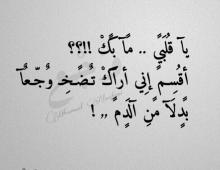 يآ قُلبَيً .. مًآ بَكْ !!؟؟
أقُسِم إني أراَكْ تُضًخِ وٌجًعآ
بًدٍلآ مًنِ آلَدِمً ,, !